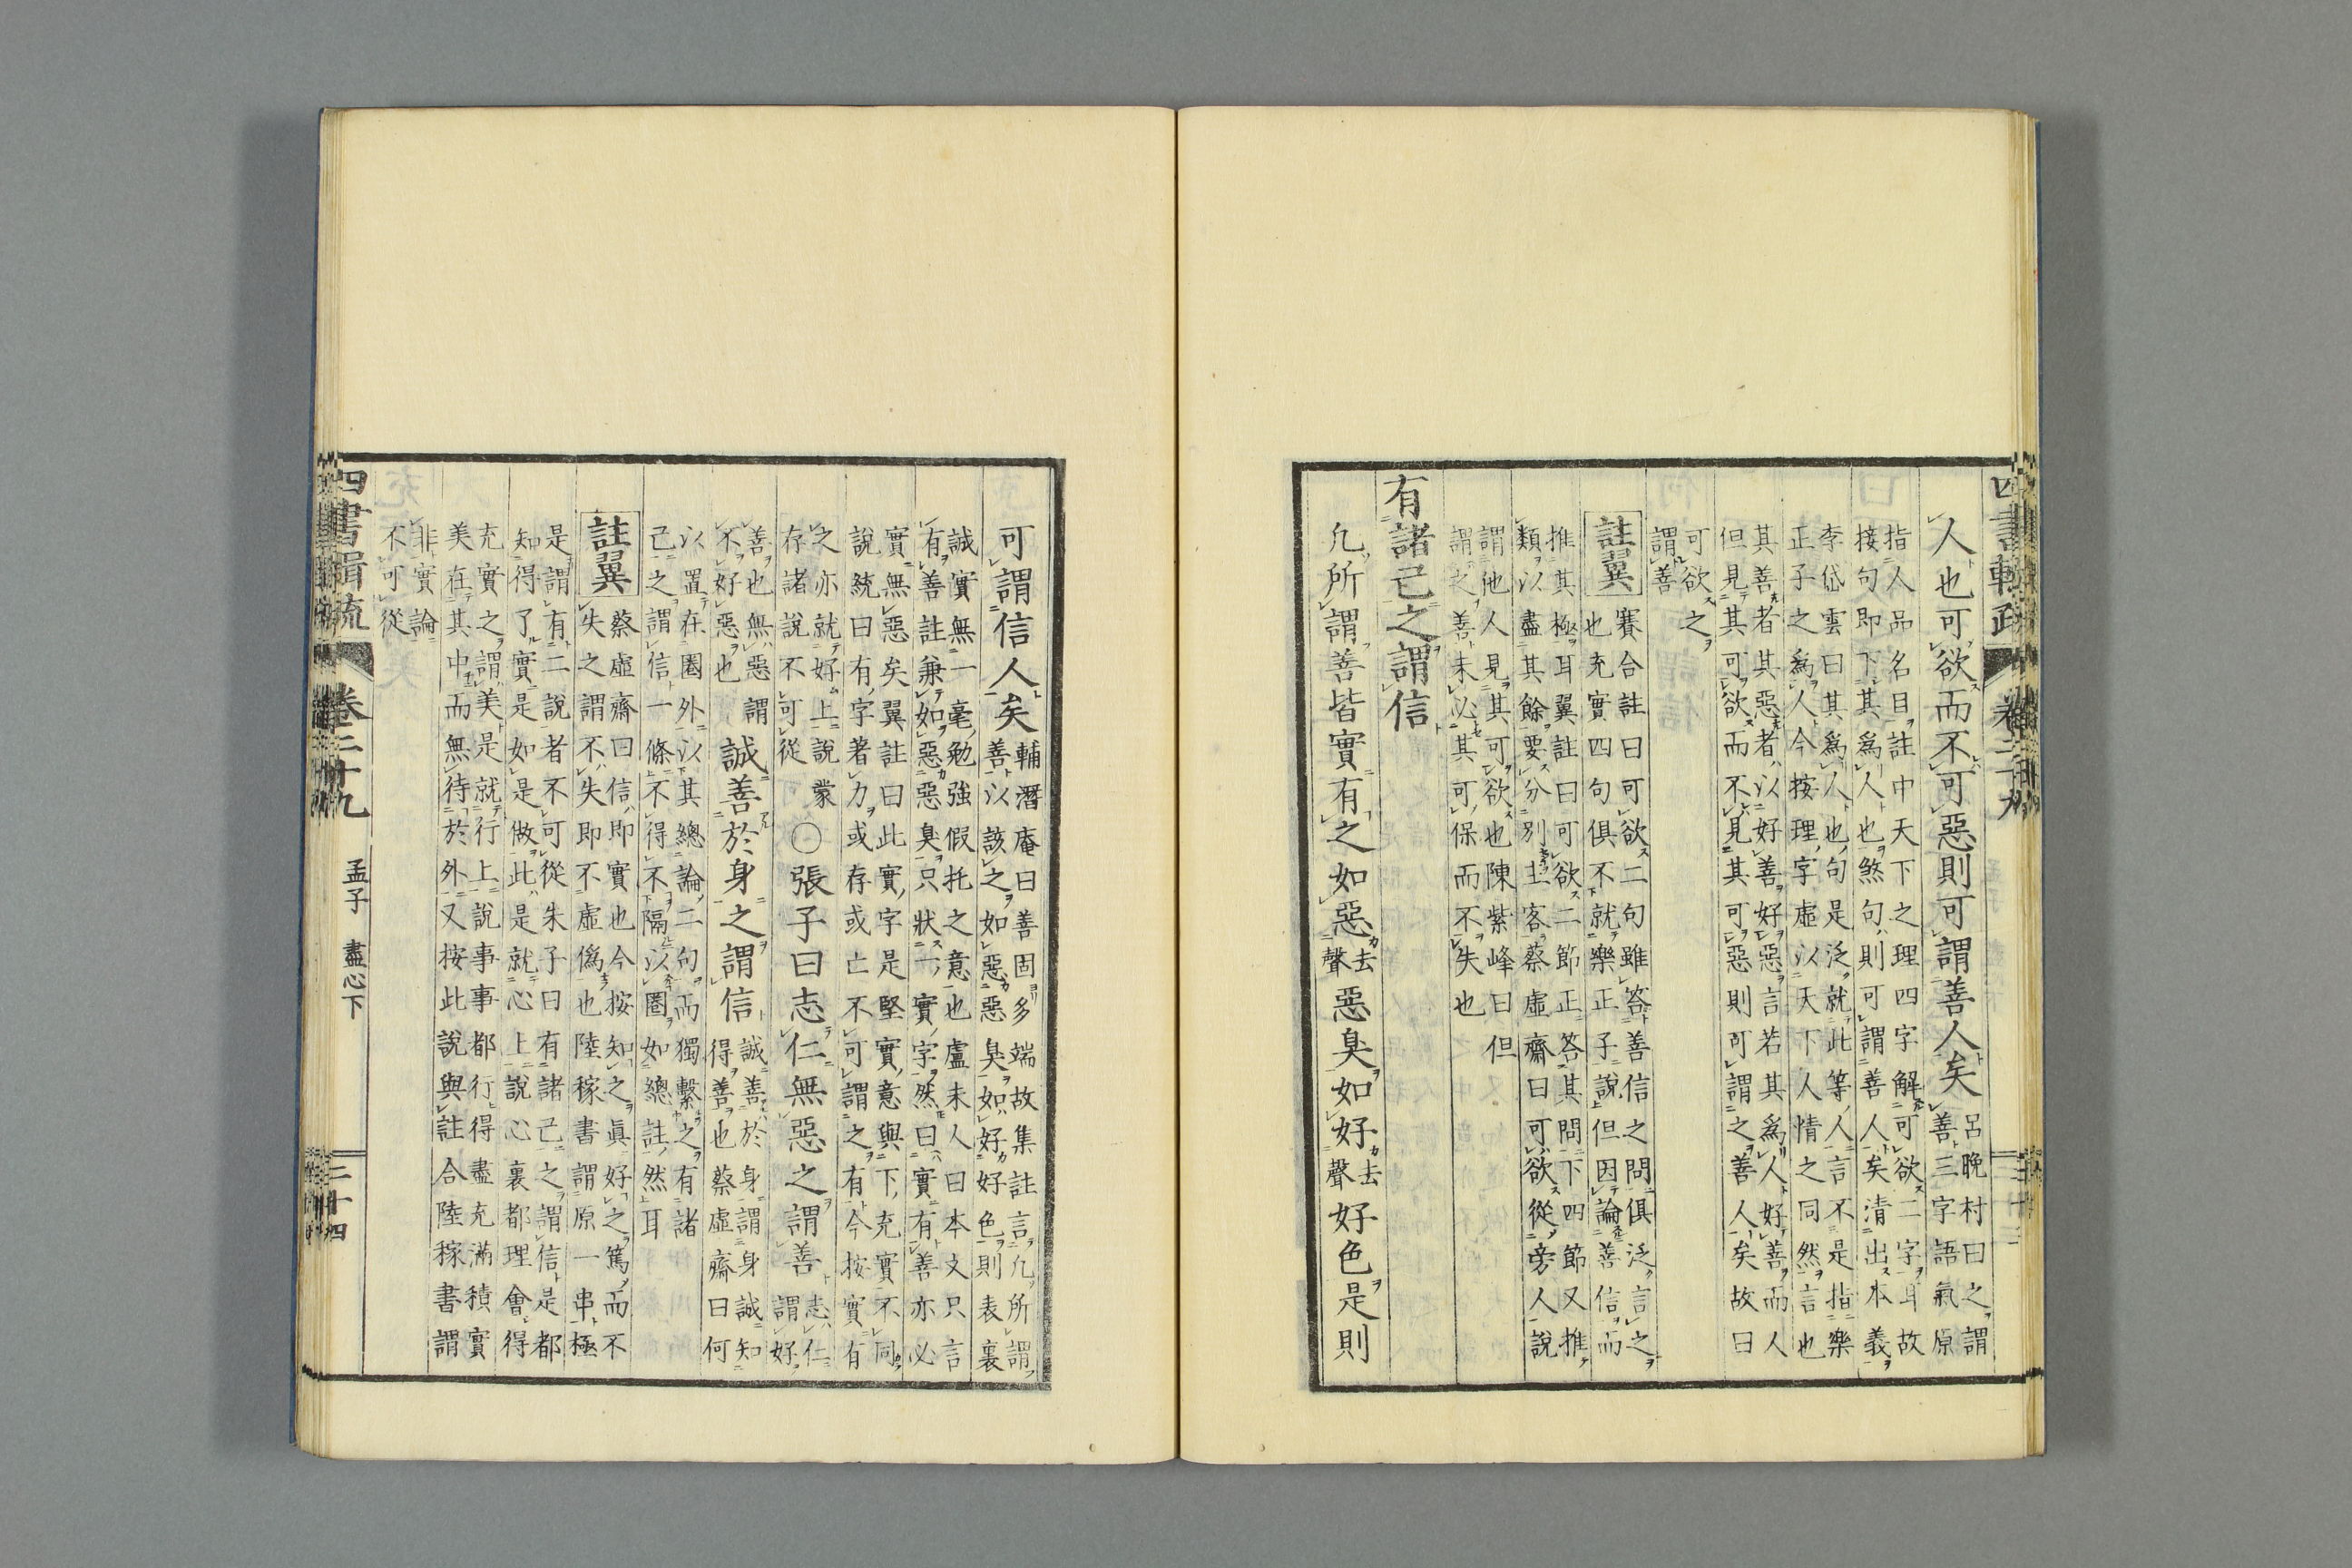 人也可欲而不可惡則可謂善人矣
呂晚村曰之謂
善三字語氣原
指人品名目註中天下之理四字解可欲二字耳故
接句即下其爲人也煞句則可謂善人矣清出本義
李岱雲曰其爲人也句是泛就此等人言不是指樂
正子之爲人今按理字虛以天下人情之同然言也
其善者其惡者以好善好惡言若其爲人好善而人
但見其可欲而不見其可惡則可謂之善人矣故曰
可欲之
謂善
註翼
賽合註曰可欲二句雖答善信之問俱泛言之
也充實四句俱不就樂正子說但因論善信而
推其極耳翼註曰可欲二節正答其問下四節又推
類以盡其餘要分別主客蔡虛齋曰可欲從旁人說
謂他人見其可欲也陳紫峰曰但
謂之善未必其可保而不失也
有諸己之謂信
凢所謂善皆實有之如惡
去
聲
惡臭如好
去
聲
好色是則
可謂信人矣
輔潛庵曰善固多端故集註言凢所謂
善以該之如惡惡臭如好好色則表裏
誠實無一毫勉強假托之意也盧未人曰本文只言
有善註兼如惡惡臭只狀一實字然曰實有善亦必
實無惡矣翼註曰此實字是堅實意與下充實不同
說統曰有字著力或存或亡不可謂之有今按實有
之亦就好上說蒙
存諸說不可從
〇張子曰志仁無惡之謂善
志仁
謂好
善也無惡謂
不好惡也
誠善於身之謂信
誠善於身謂身誠知
得善也蔡虛齋曰何
以置在圈外以其總論二句而獨繫之有諸
己之謂信一條不得不隔以圈如總註然耳
註翼
蔡虛齋曰信即實也今按知之眞好之篤而不
失之謂不失即不虛僞也陸稼書謂原一串極
是謂有二說者不可從朱子曰有諸己之謂信是都
知得了實是如是做此是就心上說心裏都理會得
充實之謂美是就行上說事事都行得盡充滿積實
美在其中而無待於外又按此說與註合陸稼書謂
非實論
不可從
四書輯疏
卷二十九
孟子 盡心下
二十四